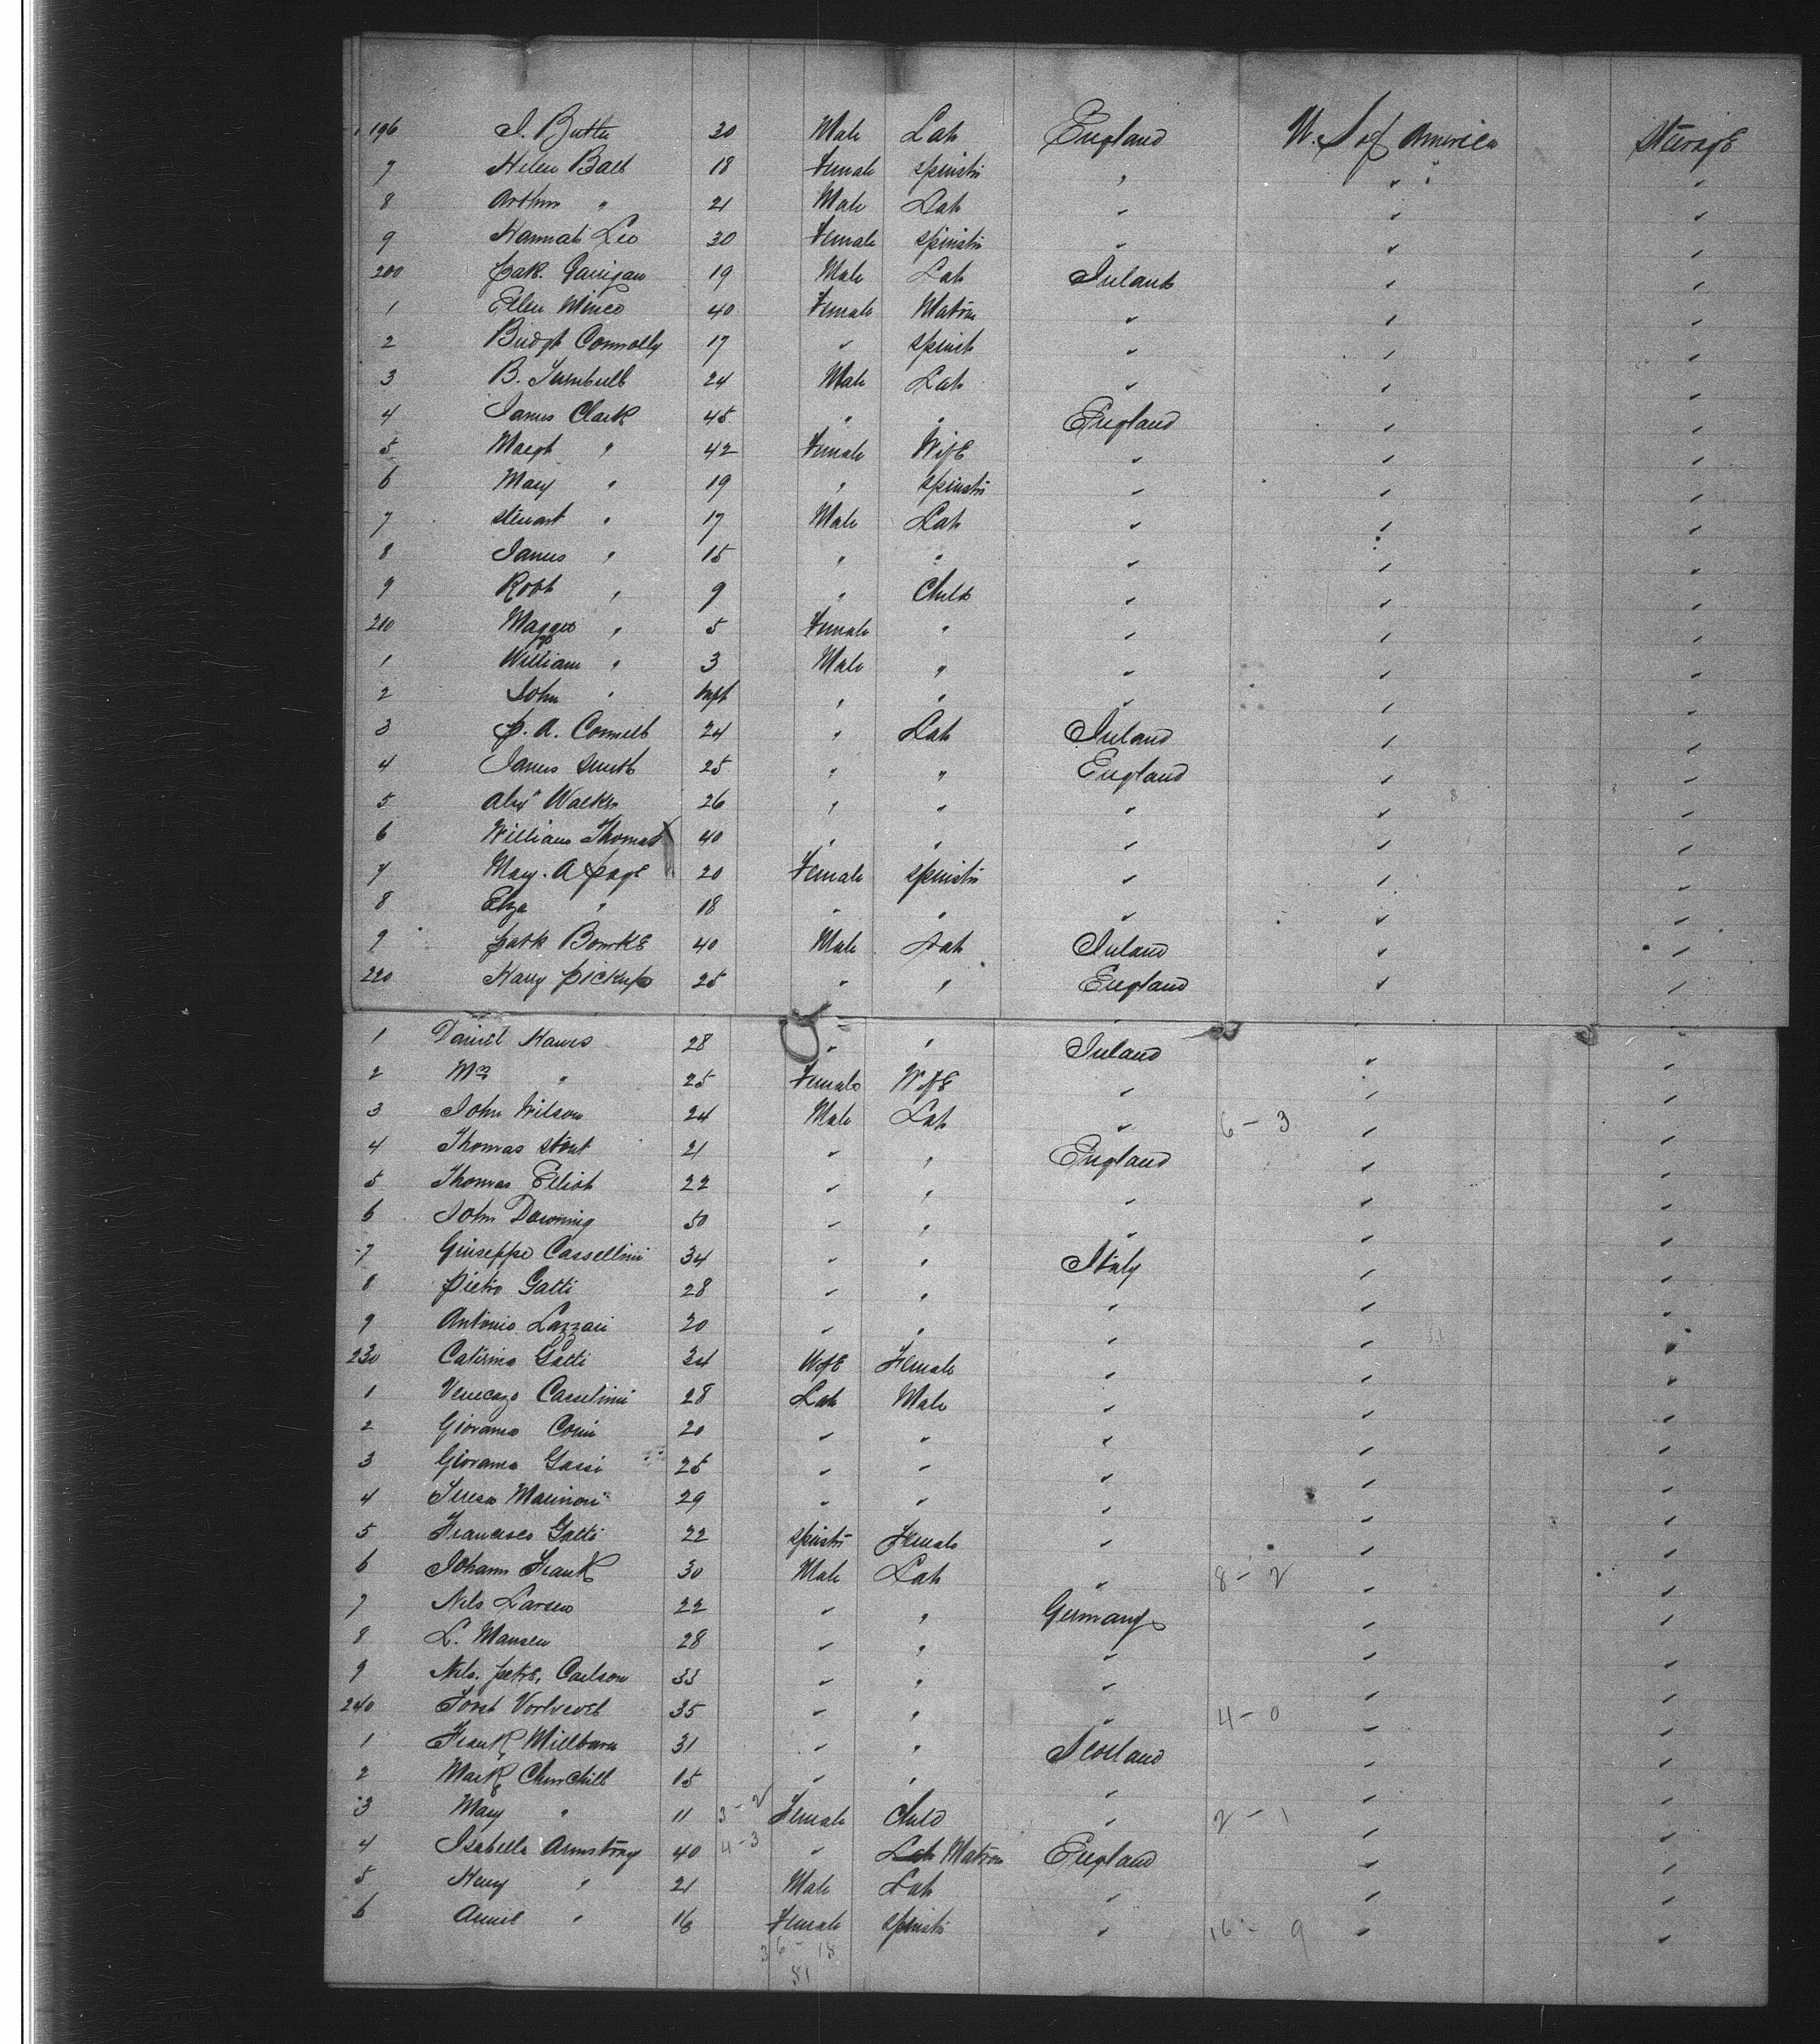 196 J. Butler 30 Male Lab England U. S of America Steerage
7 Helen Ball 18 Female Spinstr " " "
8 Arthur " 21 Male Lab " " "
9 Hannah Lee 30 Female Spinstr " " "
200 Patk. Garrigan 19 Male Lab Ireland " "
1 Ellen 40 Female Matron " " "
2 Bridgt Connolly 17 " Spinst " " "
3 B. Turnbull 24 Male Lab " " "
4 James Clark 45 " " England " "
5 Margt " 42 Female Wife " " "
6 Mary " 19 " Spinstr " " "
7 Stewart " 17 Male Lab " " "
8 James " 15 " " " " "
9 Robt " 9 " Child " " "
210 Maggie " 5 Female " " " "
1 William " 3 Male " " " "
2 John " Inft " " " " "
3 P. A. Connell 24 " Lab Ireland " "
4 James Smith 25 " " England " "
5 Alexr Walker 26 " " " " "
6 William Thomas 40 " " " " "
7 Mary. A Page 20 Female Spinstr " " "
8 Eliza " 18 " " " " "
9 Patk Bourke 40 Male Lab Ireland " "
220 Harry Pickup 25 " " England " "
1 Daniel Hawes 28 " " Ireland " "
2 Mrs " 25 Female Wife " " "
3 John Wilson 24 Male Lab " 6-3 " "
4 Thomas Stout 21 " " England " "
5 Thomas Elliot 22 " " " " "
6 John Downing 50 " " " " "
7 Giuseppe Cassellini 34 " " Italy " "
8 Pietro Gatti 28 " " " " "
9 Antonio Lazzari 20 " " " " "
230 Caterina Gatti 34 Wife Female " " "
1 Casselinni 28 Lab Male " " "
2 Giovanno 20 " " " " "
3 Giovanno Gassi 25 " " " " "
4 Teresa Marinoni 29 " " " " "
5 Francisco Gatti 22 Spinstr Female " " "
6 Johann Frank 30 Male Lab " 8-2 " "
7 Nils Larsen 22 " " Germany " "
8 L. Hansen 28 " " " " "
9 Nils. Petre, Carlson 33 " " " " "
240 35 " " " 4-0 " "
1 Frank Millbarn 31 " " Scotland " "
2 Mark Churchill 15 " " " " "
3 Mary " 11 3-2 Female Child " 2-1 " "
4 Isabella Armstrong 40 4-3 " Lab Matron England " "
5 Henry " 21 Male Lab " " "
6 Annie " 16 Female Spinstr " 16-9 " "
36-18
51